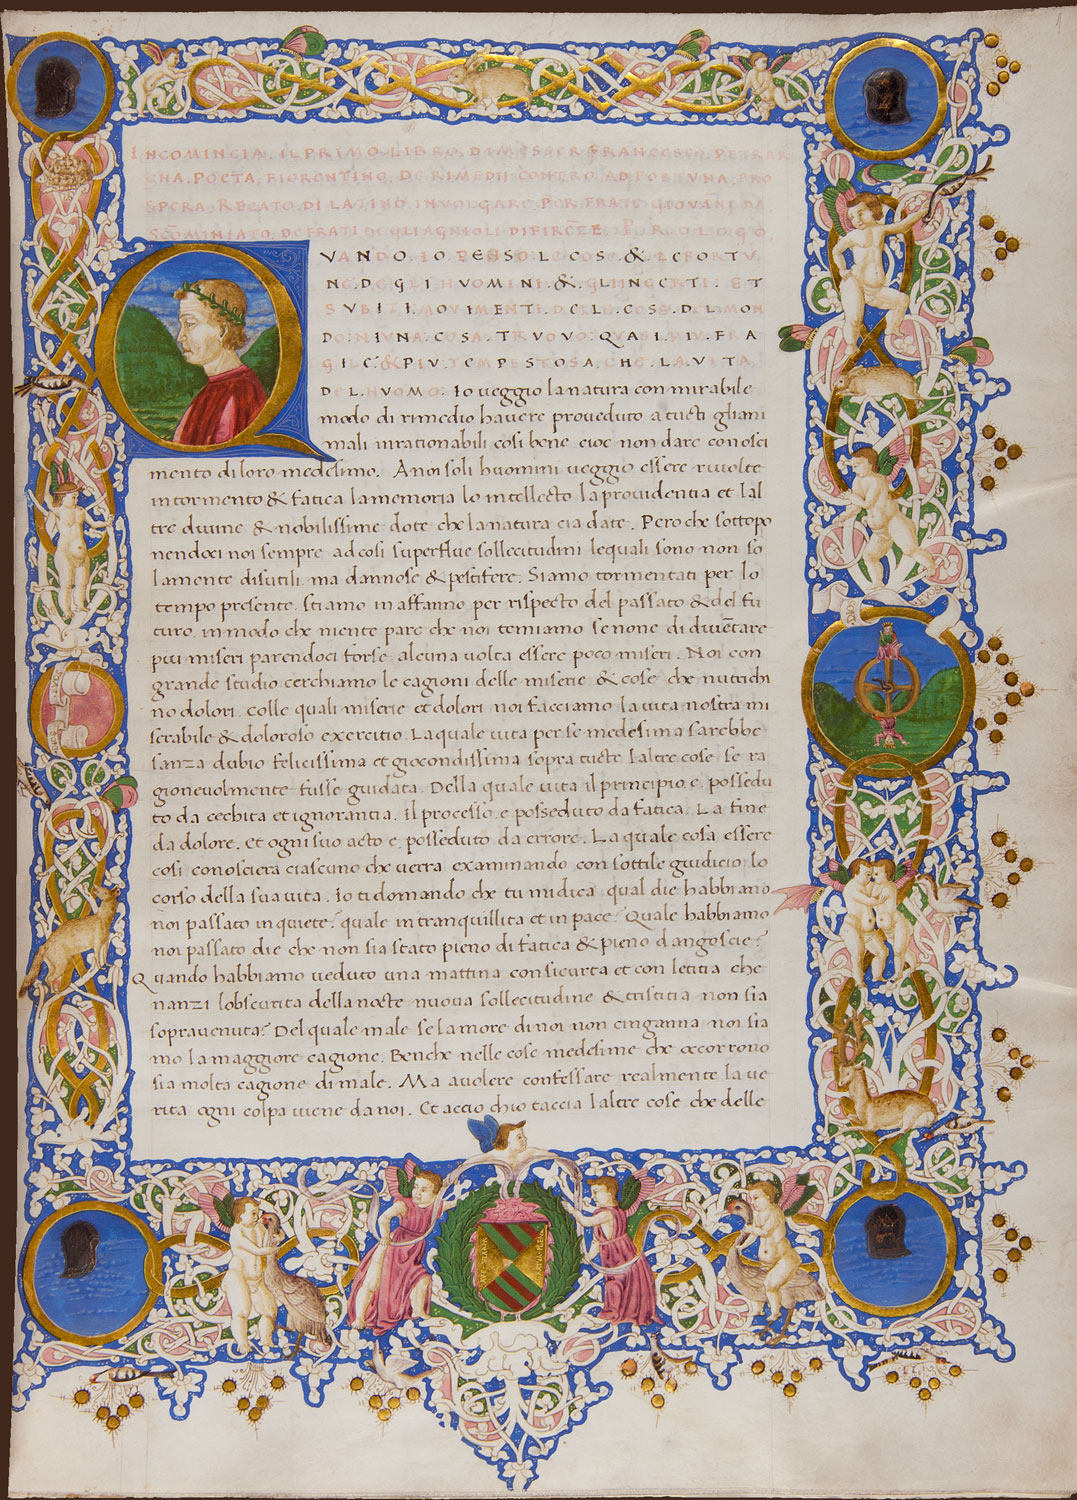 INCOMINCIA. IL PRIMO LIBRO. DI MESSER FRANCESCO. PETRAR
CHA. POETA. FIORENTINO. DE RIMEDII CONTRO AD FORTVNA. PRO
SPERA. RECATO. DI LATINO. IN VOLGARE. PER FRATE GIOVANNI DA
SCO MINIATO. DE FRATI DEGLI AGNIOLI DI FIRĒZE. PROLOGO
QVANDO. IO. PENSO. LE COSE. & LE FORTV.
NE. DEGLI HVOMINI. & GLI INCERTI. ET
SVBITI. MOVIMENTI. DELLE. COSE. DEL MON
DO. NIVNA. COSA. TRVOVO. QVASI. PIV. FRA
GILE. & PIV. TEMPESTOSA. CHE. LA. VITA.
DEL. HVOMO. Io veggio la natura con mirabile
modo di rimedio havere proveduto a tucti gliani
mali inrationabili cosi bene cioe non dare conosci
mento di loro medesimo. A noi soli huomini veggio essere rivolte
in tormento & fatica la memoria lo intellecto la providentia et lal
tre divine & nobilissime dote che la natura cia date. Pero che sottopo
nendoci noi sempre ad cosi superflue sollecitudini lequali sono non so
lamente disutili ma dannose & pestifere. Siamo tormentati per lo
tempo presente. stiamo in affanno per rispecto del passato & del fu
turo. in modo che niente pare che noi temiamo se none di diuētare
piu miseri parendoci forse alcuna volta essere poco miseri. Noi con
grande studio cerchiamo le cagioni delle miserie & cose che nutrichi
no dolori. Colle quali miserie et dolori noi facciamo la vita nostra mi
serabile & doloroso exercitio. La quale vita per se medesima sarebbe
sanza dubio felicissima et giocondissima sopra tucte laltre cose se ra
gionevolmente fusse guidata. Della quale vita il principio e. possedu
to da cechita et ignorantia. il processo e posseduto da fatica. La fine
da dolore. et ogni suo acto e. posseduto da errore. La quale cosa essere
cosi conosciera ciascuno che verra examinando con sottile giudicio lo
corso della sua vita. Io ti domando che tu mi dica qual die habbiamo
noi passato in quiete? quale in tranquillita et in pace? Quale habbiamo
noi passato die che non sia stato pieno di fatica & pieno dangoscie?
Quando habbiamo veduto una mattina con sicurta et con letitia che
nanzi lobscurita della nocte nuova sollecitudine & tristitia non sia
sopravenuta? Del quale male se lamore di noi non cinganna noi sia
mo la maggiore cagione. Benche nelle cose medesime che occorrono
sia molta cagione di male. Ma a volere confessare realmente la ve
rita ogni colpa viene da noi. Et accio chio taccia laltre cose che delle